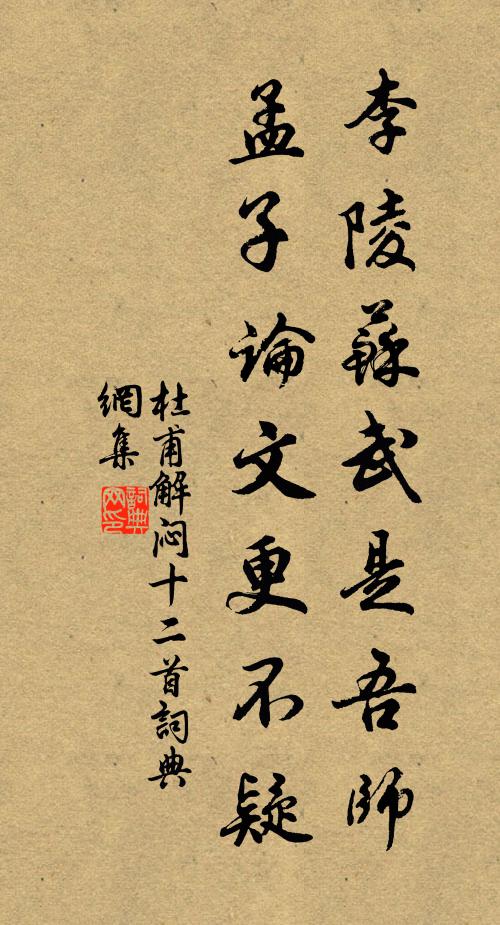 李陵蘇武是吾師
孟子論文更不疑
杜甫解闷十二首詞典
網集
詞典
网印